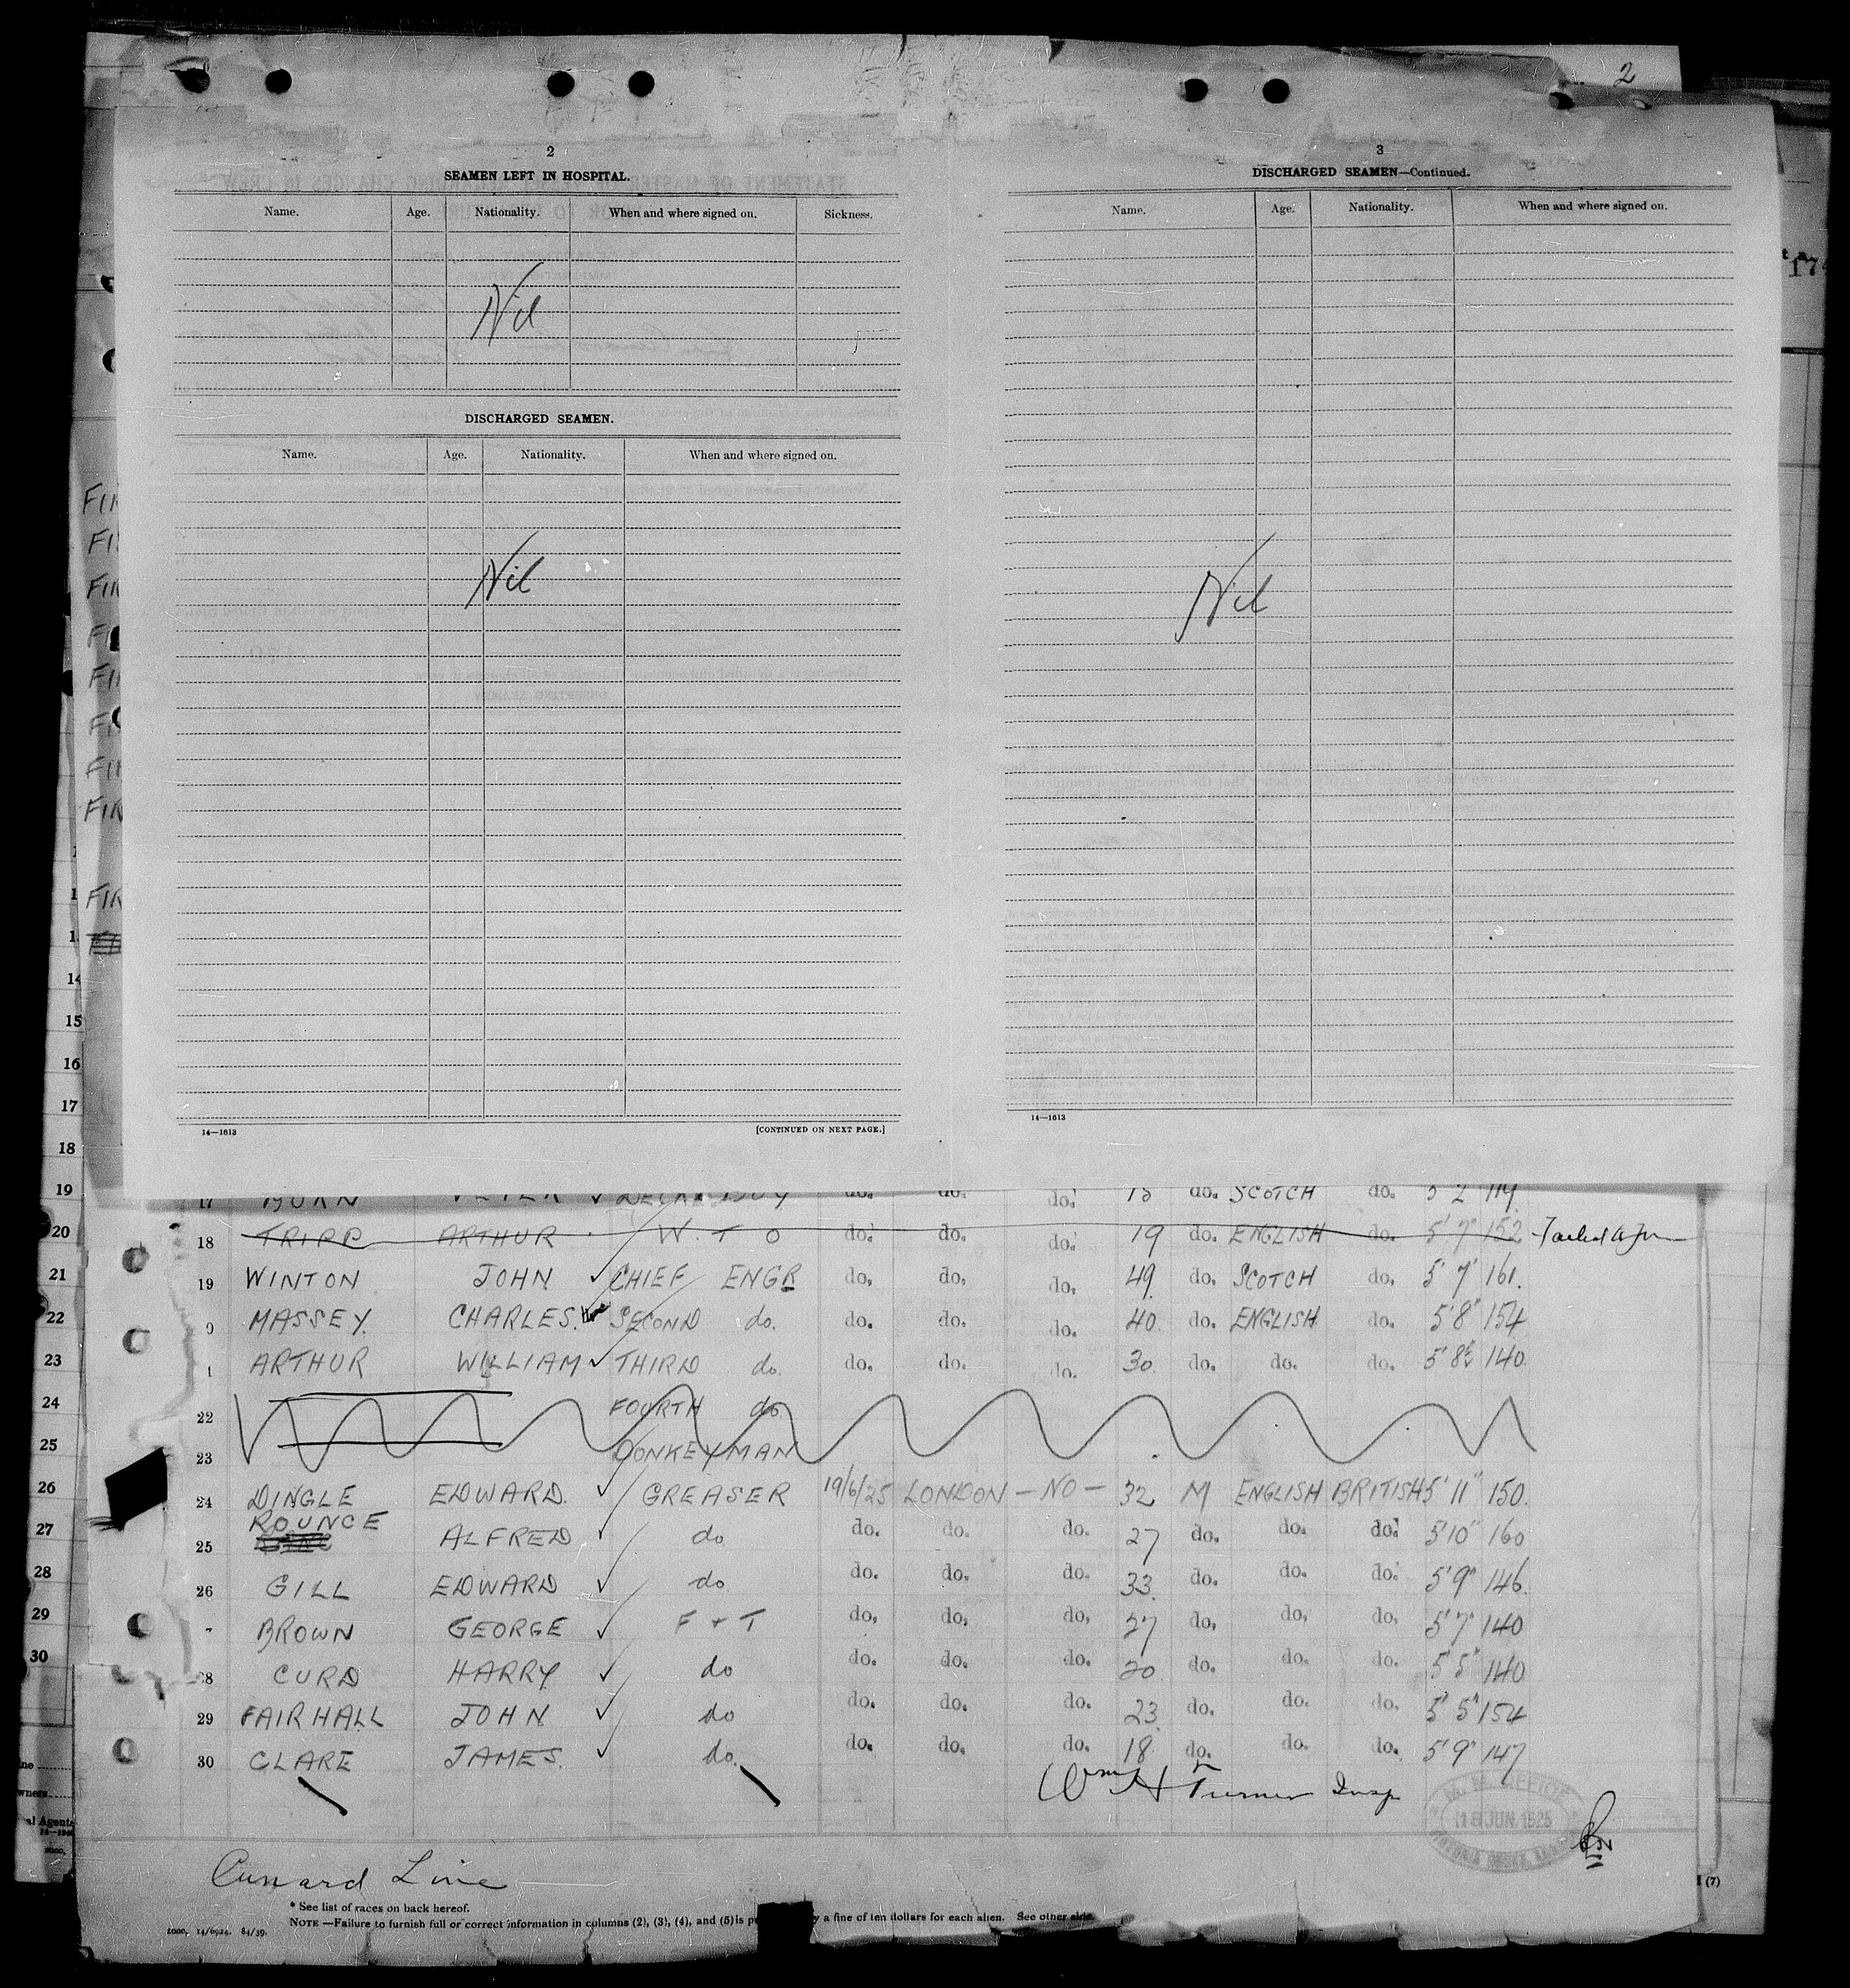 2
2
SEAMEN LEFT IN HOSPITAL.
Name. Age. Nationality. When and where signed on. Sickness.
Nil
DISCHARGED SEAMEN.
Name. Age. Nationality. When and where signed on.
Nil
14—1613 [CONTINUED ON NEXT PAGE.]
3
DISCHARGED SEAMEN—Continued.
Name. Age. Nationality. When and where signed on.
Nil
14—1613
FIR
FIR
FIR
14
15
16
17
18
19
20
21
22
23
24
25
26
27
28
29
30
17 BURN PETER ✓ DECK BOY do. do. do. 18 do. SCOTCH do. 5' 2" 119
18 TRIPP ARTHUR W. T O do. do. do. 19 do. ENGLISH do. 5' 7" 152 Failed to Join
19 WINTON JOHN ✓ CHIEF ENGR do. do. do. 49. do. SCOTCH do. 5' 7" 161.
0 MASSEY. CHARLES. SECOND do. do. do. do. 40. do. ENGLISH do. 5'8" 154
1 ARTHUR WILLIAM ✓ THIRD do. do. do. do. 30. do. do. do. 5' 8½ 140.
22 FOURTH do
23 DONKEYMAN
24 DINGLE EDWARD. ✓ GREASER 19/6/25 LONDON — NO — 32 M ENGLISH BRITISH 5' 11" 150.
ROUNCE
25 ALFRED ✓ do do. do. do. 27 do. do. do. 5'10" 160
26 GILL EDWARD ✓ do do. do. do. 33. do. do. do. 5'9" 146.
BROWN GEORGE ✓ F + T do. do. do. 27 do. do. do. 5'7" 140
28 CURD HARRY ✓ do do. do. do. 20. do. do. do. 5' 5" 140
29 FAIRHALL JOHN ✓ do do. do. do. 23. do. do. do. 5' 5" 154
30 CLARE JAMES. ✓ do. do. do. do. 18. do. do. do. 5' 9" 147
Wm H Turner Insp
M. M. OFFICE
18 JUN. 1925
Cunard Line
* See list of races on back hereof.
NOTE—Failure to furnish full or correct information in columns (2), (3), (4), and (5) is y a fine of ten dollars for each alien. See other side.
1000. 14/0924. 84/39.
(7)